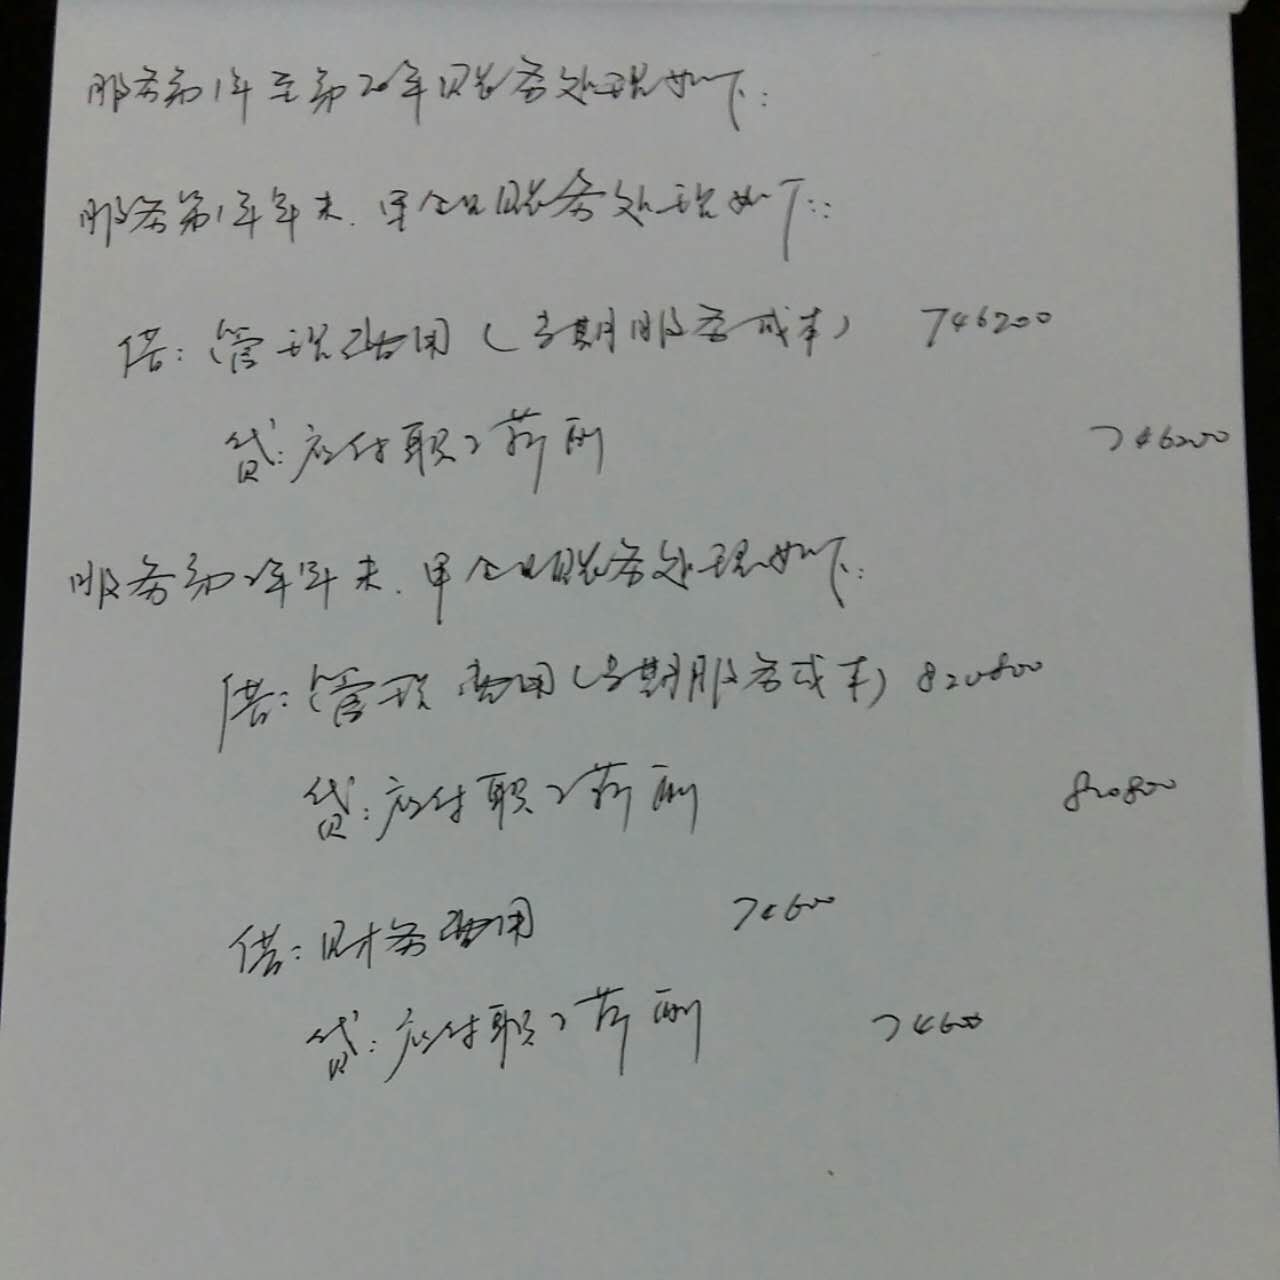 服务第1年至第20年账务处理如下:
服务第1年年末.甲企业账务处理如下::
借:管理费用(当期服务成本) 746200
贷:应付职工薪酬 746200
服务第2年年末.甲企业账务处理如下:
借:管理费用(当期服务成本) 820800
贷:应付职工薪酬 820800
借:财务费用 74600
贷:应付职工薪酬 74600